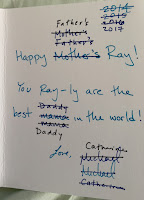 2014
2015
2016
2017
Father's
Mother's
Father's
Happy Mother's Ray!
You Ray-ly are the
Daddy
best mama in the world!
mama
Daddy
Love, Catherine
Michael
Michael
Catherine